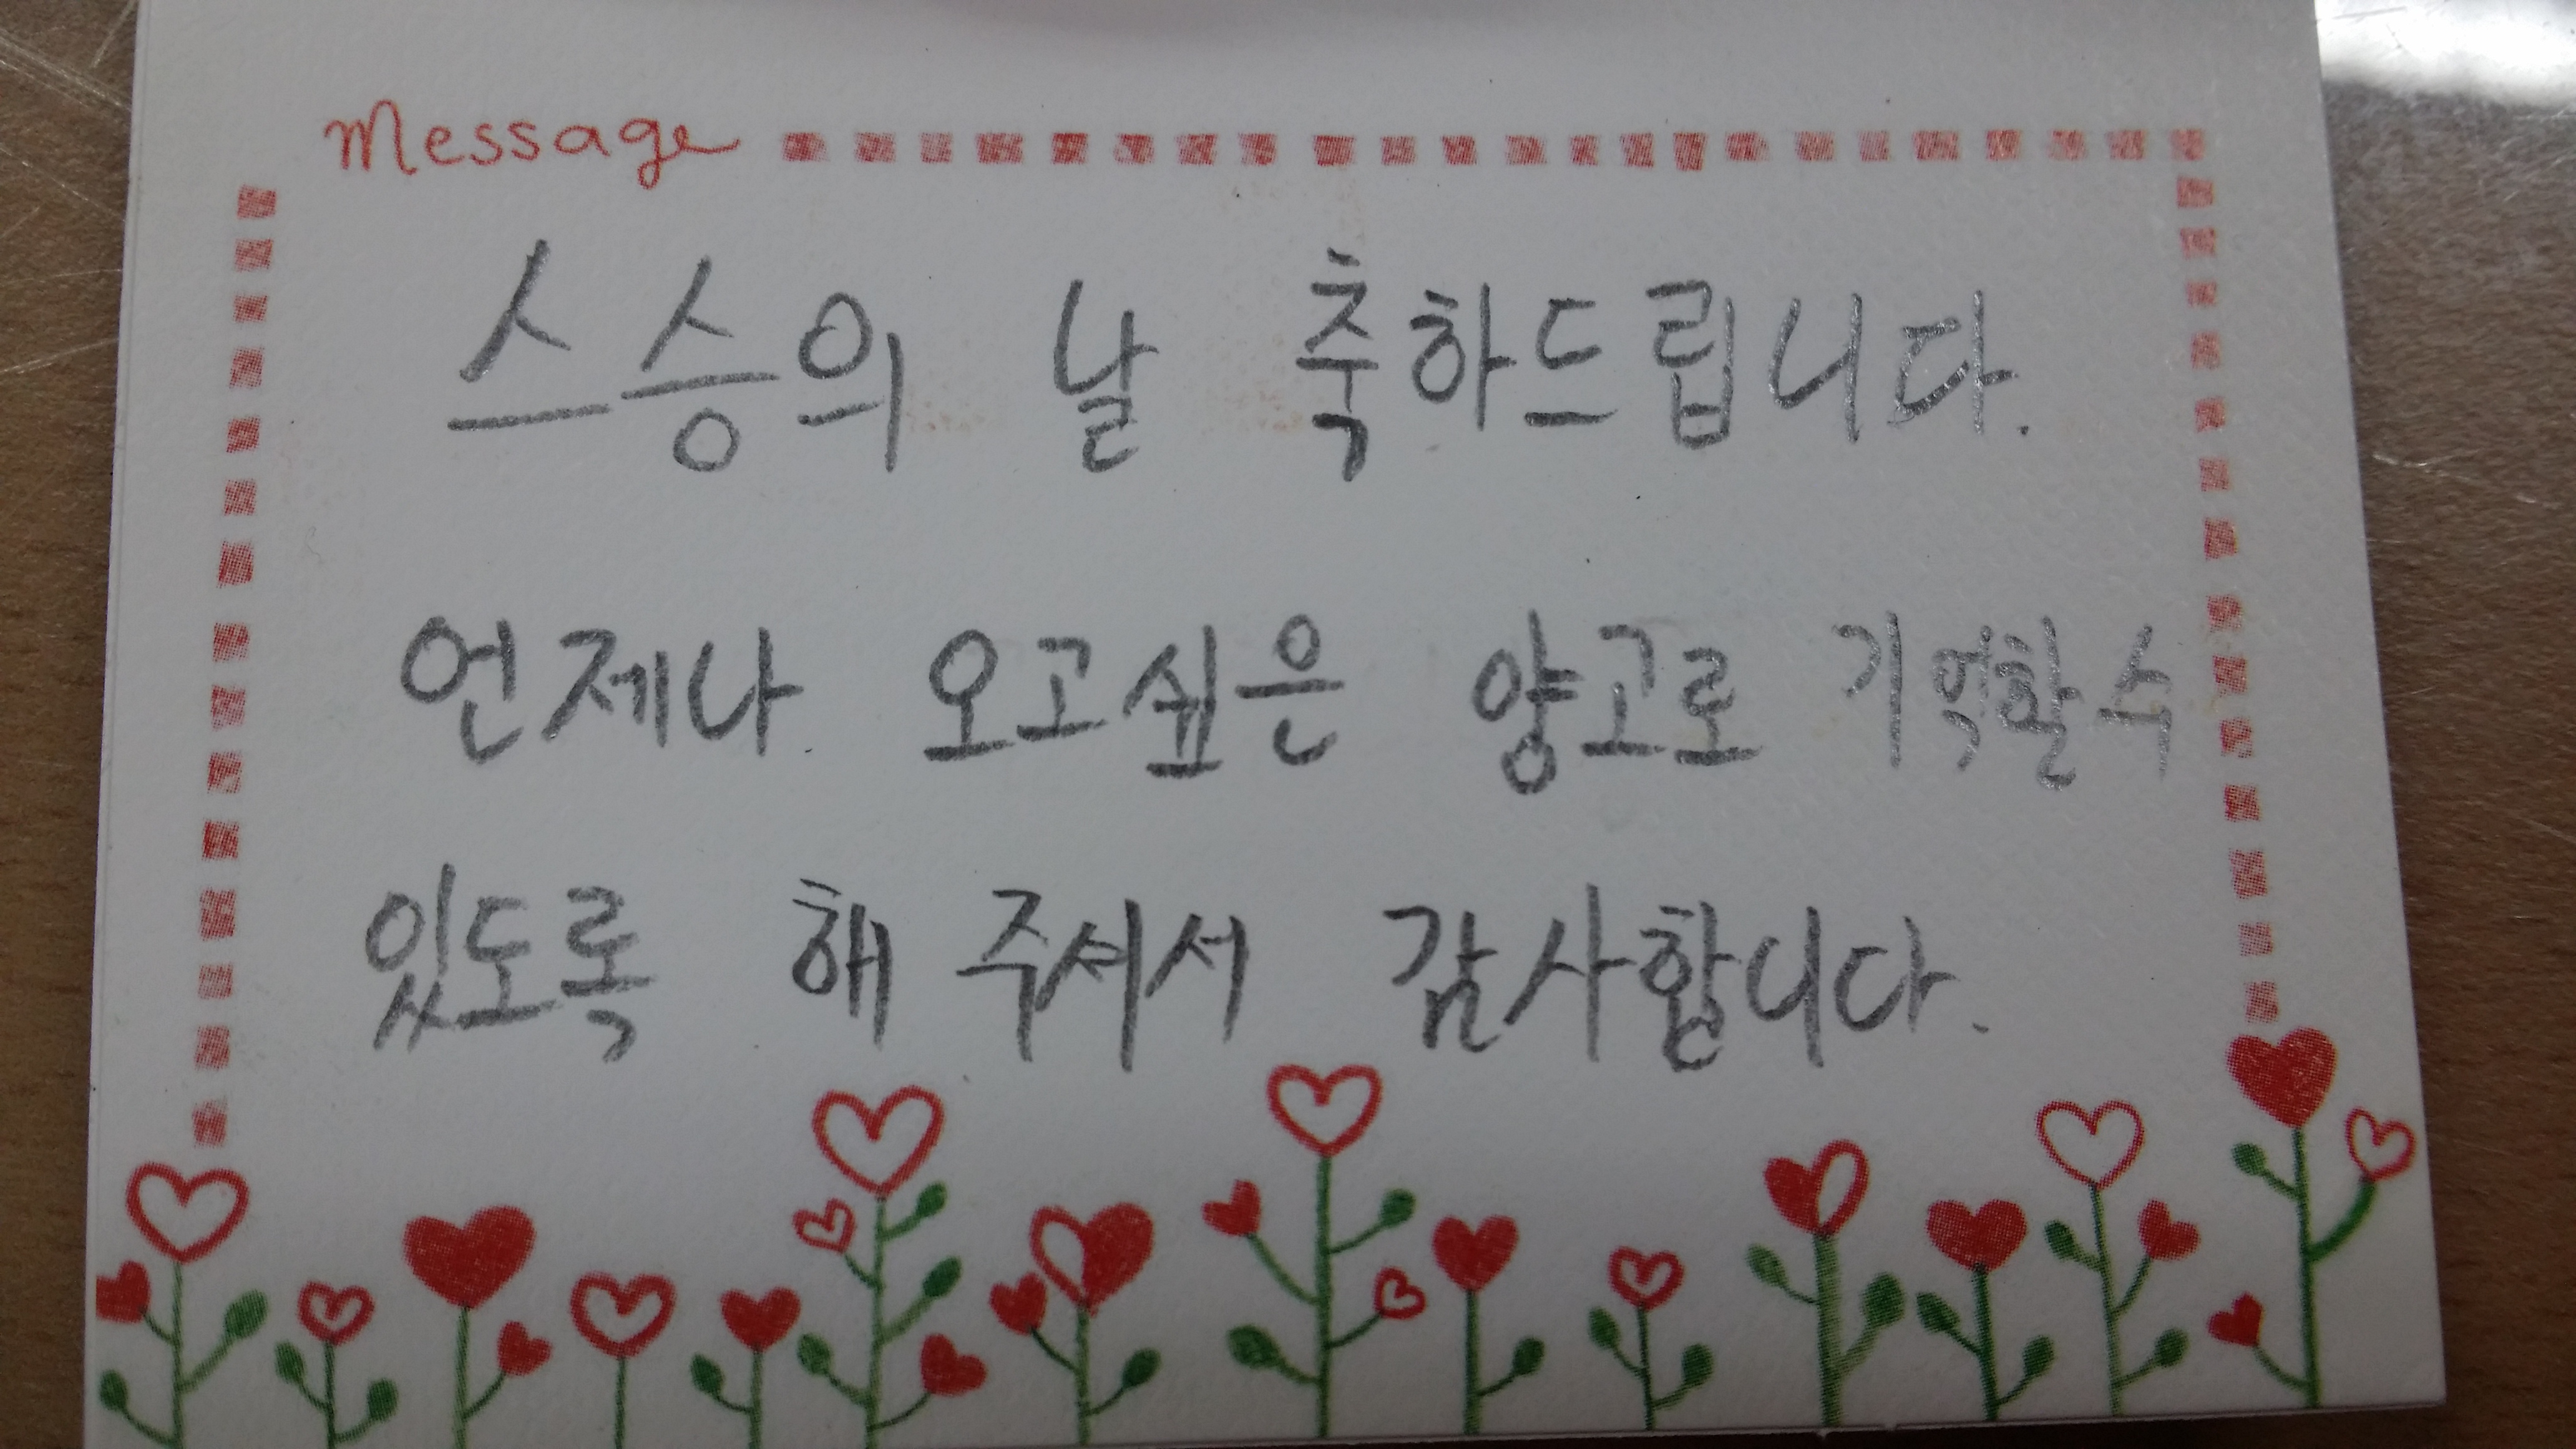 Message
스승의 날 축하드립니다.
언제나 오고싶은 양고로 기억할 수
있도록 해 주셔서 감사합니다.